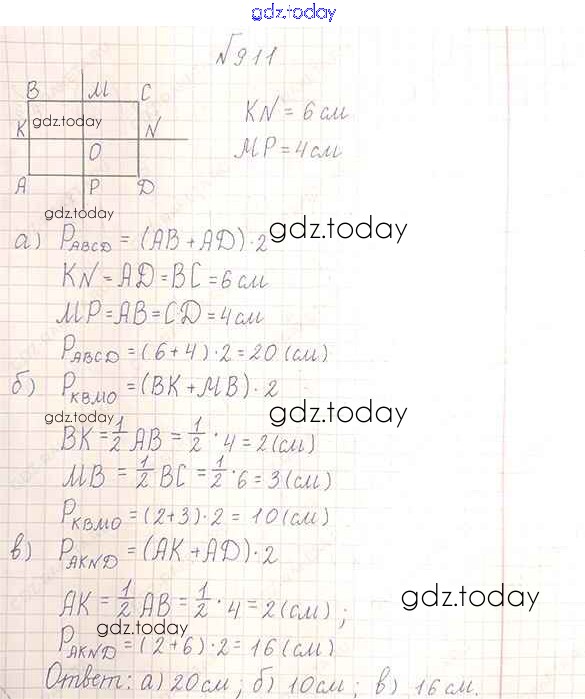 gdz.today
№911
B M C
KN = 6 см
K gdz.today N
MP = 4 см
O
A P D
gdz.today
а) P_ABCD = (AB + AD) · 2 gdz.today
KN = AD = BC = 6 см
MP = AB = CD = 4 см
P_ABCD = (6 + 4) · 2 = 20 (см)
б) P_KBMO = (BK + MB) · 2
gdz.today gdz.today
BK = 1/2 AB = 1/2 · 4 = 2 (см)
MB = 1/2 BC = 1/2 · 6 = 3 (см)
P_KBMO = (2 + 3) · 2 = 10 (см)
в) P_AKND = (AK + AD) · 2
AK = 1/2 AB = 1/2 · 4 = 2 (см);
gdz.today
gdz.today
P_AKND = (2 + 6) · 2 = 16 (см)
Ответ: а) 20 см; б) 10 см; в) 16 см.